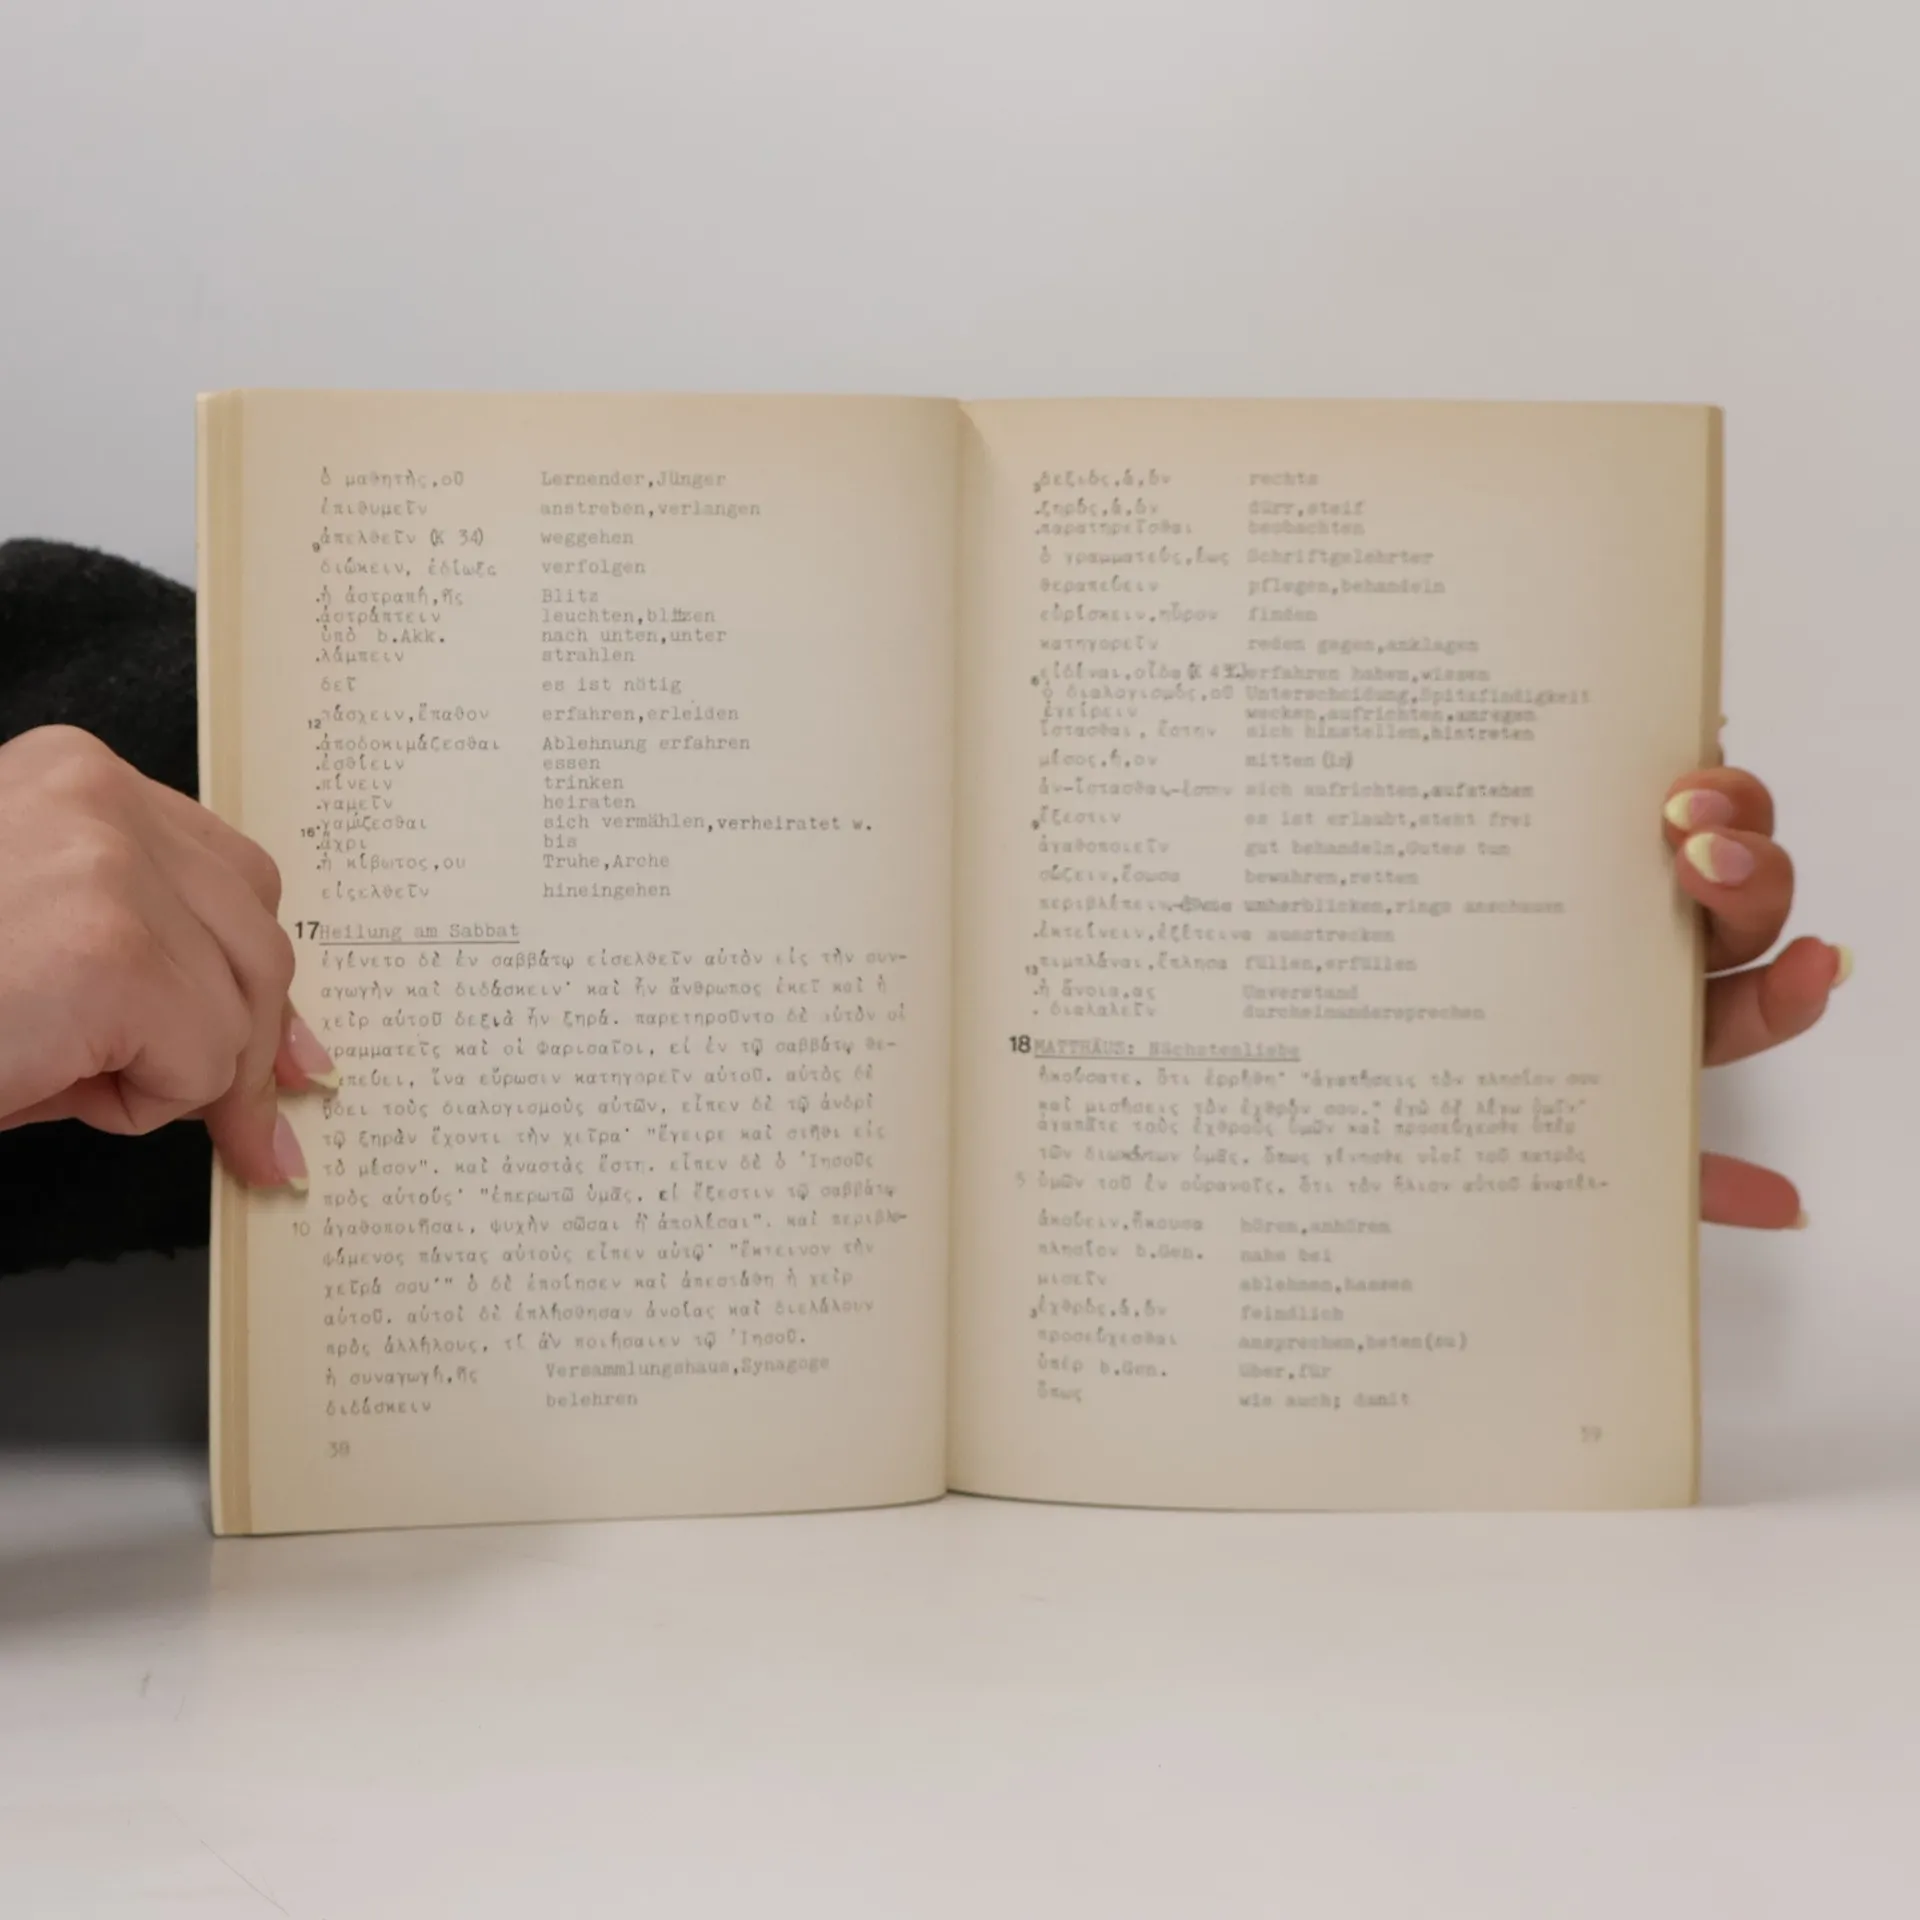 ὁ μαθητὴς,οῦ Lernender,Jünger
ἐπιθυμεῖν anstreben,verlangen
9 ἀπελθεῖν (K 34) weggehen
διώκειν, ἐδίωξα verfolgen
.ἡ ἀστραπή,ῆς Blitz
.ἀστράπτειν leuchten,blitzen
ὑπὸ b.Akk. nach unten,unter
.λάμπειν strahlen
δεῖ es ist nötig
12 πάσχειν,ἔπαθον erfahren,erleiden
.ἀποδοκιμάζεσθαι Ablehnung erfahren
.ἐσθίειν essen
.πίνειν trinken
.γαμεῖν heiraten
.γαμίζεσθαι sich vermählen,verheiratet w.
16 .ἄχρι bis
.ἡ κίβωτος,ου Truhe,Arche
εἰςελθεῖν hineingehen
17 Heilung am Sabbat
ἐγένετο δὲ ἐν σαββάτῳ εἰσελθεῖν αὐτὸν εἰς τὴν συν-
αγωγὴν καὶ διδάσκειν· καὶ ἦν ἄνθρωπος ἐκεῖ καὶ ἡ
χεὶρ αὐτοῦ δεξιὰ ἦν ξηρά. παρετηροῦντο δὲ αὐτὸν οἱ
γραμματεῖς καὶ οἱ Φαρισαῖοι, εἰ ἐν τῷ σαββάτῳ θε-
απεύει, ἵνα εὕρωσιν κατηγορεῖν αὐτοῦ. αὐτὸς δὲ
ᾔδει τοὺς διαλογισμοὺς αὐτῶν, εἶπεν δὲ τῷ ἀνδρὶ
τῷ ξηρὰν ἔχοντι τὴν χεῖρα· "ἔγειρε καὶ στῆθι εἰς
τὸ μέσον". καὶ ἀναστὰς ἔστη. εἶπεν δὲ ὁ Ἰησοῦς
πρὸς αὐτούς· "ἐπερωτῶ ὑμᾶς, εἰ ἔξεστιν τῷ σαββάτῳ
10 ἀγαθοποιῆσαι, ψυχὴν σῶσαι ἢ ἀπολέσαι". καὶ περιβλε-
ψάμενος πάντας αὐτοὺς εἶπεν αὐτῷ· "ἔκτεινον τὴν
χεῖρά σου·" ὁ δὲ ἐποίησεν καὶ ἀπεστάθη ἡ χεὶρ
αὐτοῦ. αὐτοὶ δὲ ἐπλήσθησαν ἀνοίας καὶ διελάλουν
πρὸς ἀλλήλους, τί ἂν ποιήσαιεν τῷ Ἰησοῦ.
ἡ συναγωγή,ῆς Versammlungshaus,Synagoge
διδάσκειν belehren
38
3 δεξιός,ά,όν rechts
.ξηρός,ά,όν dürr,steif
.παρατηρεῖσθαι beobachten
ὁ γραμματεύς,έως Schriftgelehrter
θεραπεύειν pflegen,behandeln
εὑρίσκειν,ηὗρον finden
κατηγορεῖν reden gegen,anklagen
εἰδέναι,οἶδα erfahren haben,wissen
6 ὁ διαλογισμός,οῦ Unterscheidung,Spitzfindigkeit
ἐγείρειν wecken,aufrichten,anregen
ἵστασθαι, ἔστην sich hinstellen,hintreten
μέσος,η,ον mitten (in)
ἀν-ίστασθαι,-έστην sich aufrichten,aufstehen
9 ἔξεστιν es ist erlaubt,steht frei
ἀγαθοποιεῖν gut behandeln,Gutes tun
σῴζειν,ἔσωσα bewahren,retten
περιβλέπειν, umherblicken,rings anschauen
.ἐκτείνειν,ἐξέτεινα ausstrecken
13 πιμπλάναι,ἔπλησα füllen,erfüllen
.ἡ ἄνοια,ας Unverstand
. διαλαλεῖν durcheinandersprechen
18 MATTHÄUS: Nächstenliebe
ἠκούσατε, ὅτι ἐρρήθη· "ἀγαπήσεις τὸν πλησίον σου
καὶ μισήσεις τὸν ἐχθρόν σου." ἐγὼ δὲ λέγω ὑμῖν·
ἀγαπᾶτε τοὺς ἐχθροὺς ὑμῶν καὶ προσεύχεσθε ὑπὲρ
τῶν διωκόντων ὑμᾶς, ὅπως γένησθε υἱοὶ τοῦ πατρὸς
5 ὑμῶν τοῦ ἐν οὐρανοῖς, ὅτι τὸν ἥλιον αὐτοῦ ἀνατέλ-
ἀκούειν,ἤκουσα hören,anhören
πλησίον b.Gen. nahe bei
μισεῖν ablehnen,hassen
3 ἐχθρός,ά,όν feindlich
προσεύχεσθαι ansprechen,beten(zu)
ὑπέρ b.Gen. über,für
ὅπως wie auch; damit
39